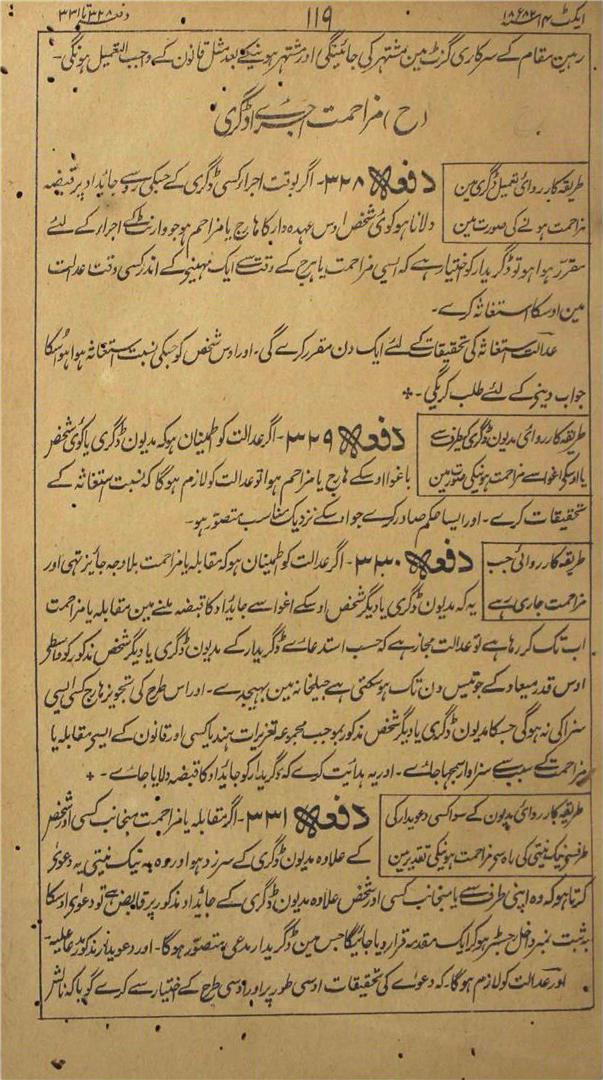 ایکٹ ۱۴ ۱۸۸۲ء
۱۱۹
دفعہ ۳۲۸ تا ۳۳۱
رہن مقام کے سرکاری گزٹ مین مشتہر کی جائینگی اور مشتہر ہونیکے بعد مثل قانون کے واجب التعمیل ہونگی۔
(ح) مزاحمت اجراے ڈگری
طریقہ کارروائی تعمیل ڈگری مین
مزاحمت ہونے کی صورت مین
دفعہ ۳۲۸۔ اگر بوقت اجرا کسی ڈگری کے جسکی روسے جائداد پر قبضہ
دلانا ہو کوئی شخص اوس عہدہ دار کا ہارج یا مزاحم ہو جو وارنٹ کے اجرار کے لئے
مقرر ہوا ہو تو ڈگریدار کو اختیار ہے کہ ایسی مزاحمت یا ہرج کے وقت سے ایک مہینے کے اندر کسی وقت عدالت
مین اوسکا استغاثہ کرے۔
عدالت استغاثہ کی تحقیقات کے لئے ایک دن مقرر کرے گی۔ اور اوس شخص کو جسکی نسبت استغاثہ ہوا ہو اوسکا
جواب دینے کے لئے طلب کریگی۔
طریقہ کارروائی مدیون ڈگری کیطرف سے
یا اوسکی اغوا سے مزاحمت ہونیکی صورت مین
دفعہ ۳۲۹۔ اگر عدالت کو اطمینان ہو کہ مدیون ڈگری یا کوئی شخص
باغوا اوسکے ہارج یا مزاحم ہوا تو عدالت کو لازم ہوگا کہ نسبت استغاثہ کے
تحقیقات کرے۔ اور ایسا حکم صادر کرے جو اوسکے نزدیک مناسب متصور ہو۔
طریقہ کارروائی جب
مزاحمت جاری رہے
دفعہ ۳۳۰۔ اگر عدالت کو اطمینان ہو کہ مقابلہ یا مزاحمت بلاوجہ جایز تہی اور
یہ کہ مدیون ڈگری یا دیگر شخص اوسکے اغوا سے جائداد کا قبضہ ملنے مین مقابلہ یا مزاحمت
اب تک کر رہا ہے تو عدالت مجاز ہے کہ حسب استدعاے ڈگریدار کے مدیون ڈگری یا دیگر شخص مذکور کو واسطے
اوس قدر میعاد کے جو تیس دن تک ہو سکتی ہے جیلخانہ مین بہیجدے۔ اور اس طرح کی تجویز ہارج کسی ایسی
سزا کی نہ ہوگی جسکا مدیون ڈگری یا دیگر شخص مذکور بموجب مجموعہ تعزیرات ہند یا کسی اور قانون کے ایسے مقابلہ یا
مزاحمت کے سبب سے سزاوار سمجہا جاے۔ اور یہ ہدایت کرے کہ ڈگریدار کو جائداد کا قبضہ دلایا جاے۔
طریقہ کارروائی مدیون کے سوا کسی دعویدار کی
طرفسے نیک نیتی کی راہ سے مزاحمت ہونیکی تقدیر مین
دفعہ ۳۳۱۔ اگر مقابلہ یا مزاحمت منجانب کسی اور شخص
کے علاوہ مدیون ڈگری کے سرزد ہو اور وہ بہ نیک نیتی یہ دعویٰ
کرتا ہو کہ وہ اپنی طرف سے یا منجانب کسی اور شخص علاوہ مدیون ڈگری کے جائداد مذکور پر قابض ہے تو دعویٰ اوسکا
بہ ثبت نمبر داخل رجسٹر ہو کر ایک مقدمہ قرار دیا جائیگا جس مین ڈگریدار مدعی متصور ہوگا۔ اور دعویدار مذکور مدعا علیہ۔
اور عدالت کو لازم ہوگا۔ کہ دعوے کی تحقیقات اوسی طور پر اور اوسی طرح کے اختیار سے کرے گویا کہ نالش